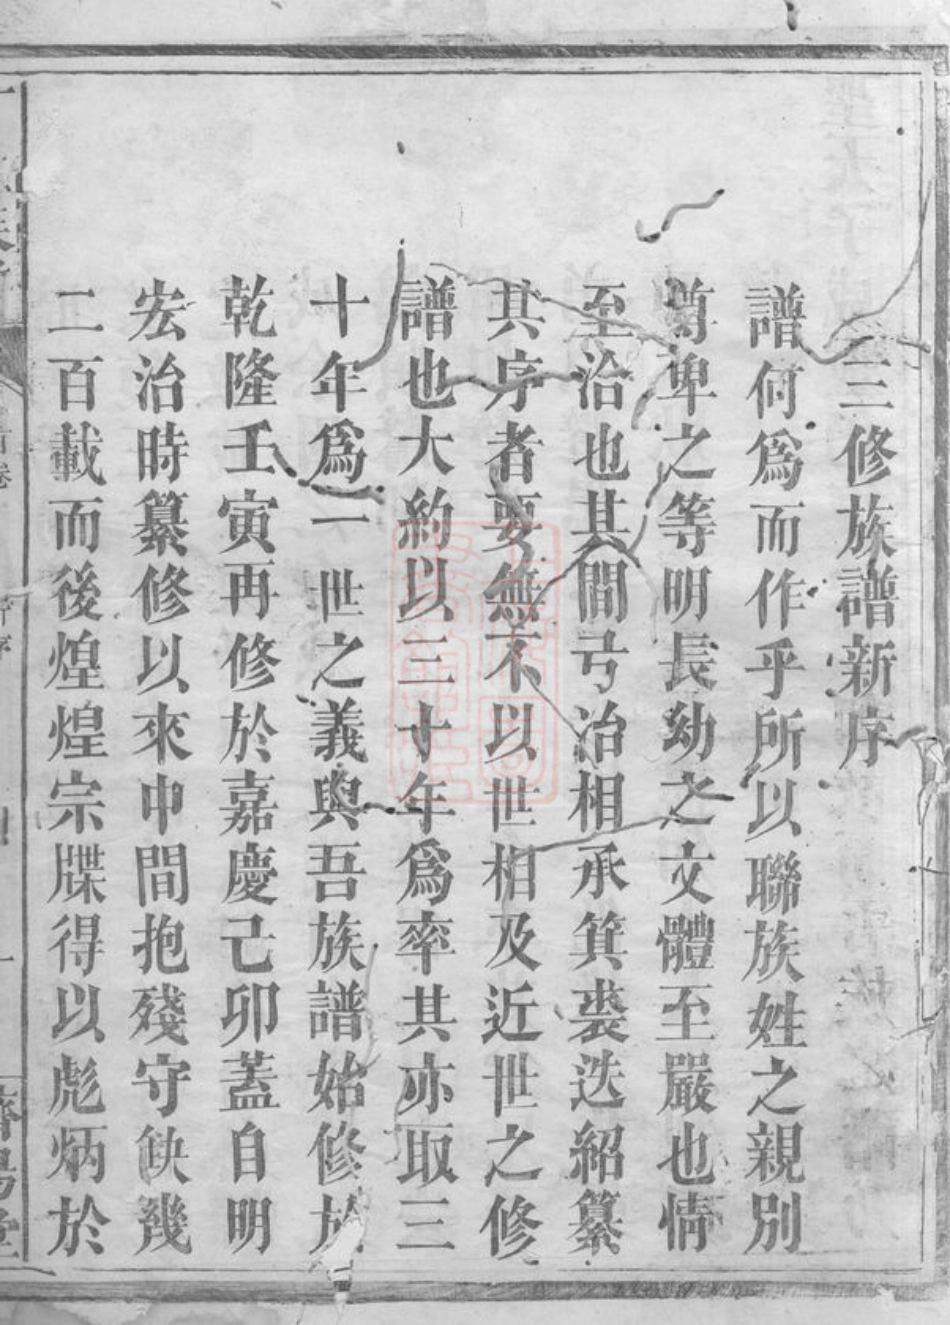 三修族譜新序
譜何爲而作乎所以聯族姓之親別
尊卑之等明長幼之文體至嚴也情
至洽也其間弓冶相承箕裘迭紹纂
其序者要無不以世相及近世之修
譜也大約以三十年爲率其亦取三
十年爲一世之義與吾族譜始修於
乾隆壬寅再修於嘉慶己卯蓋自明
宏治時纂修以來中間抱殘守缺幾
二百載而後煌煌宗牒得以彪炳於